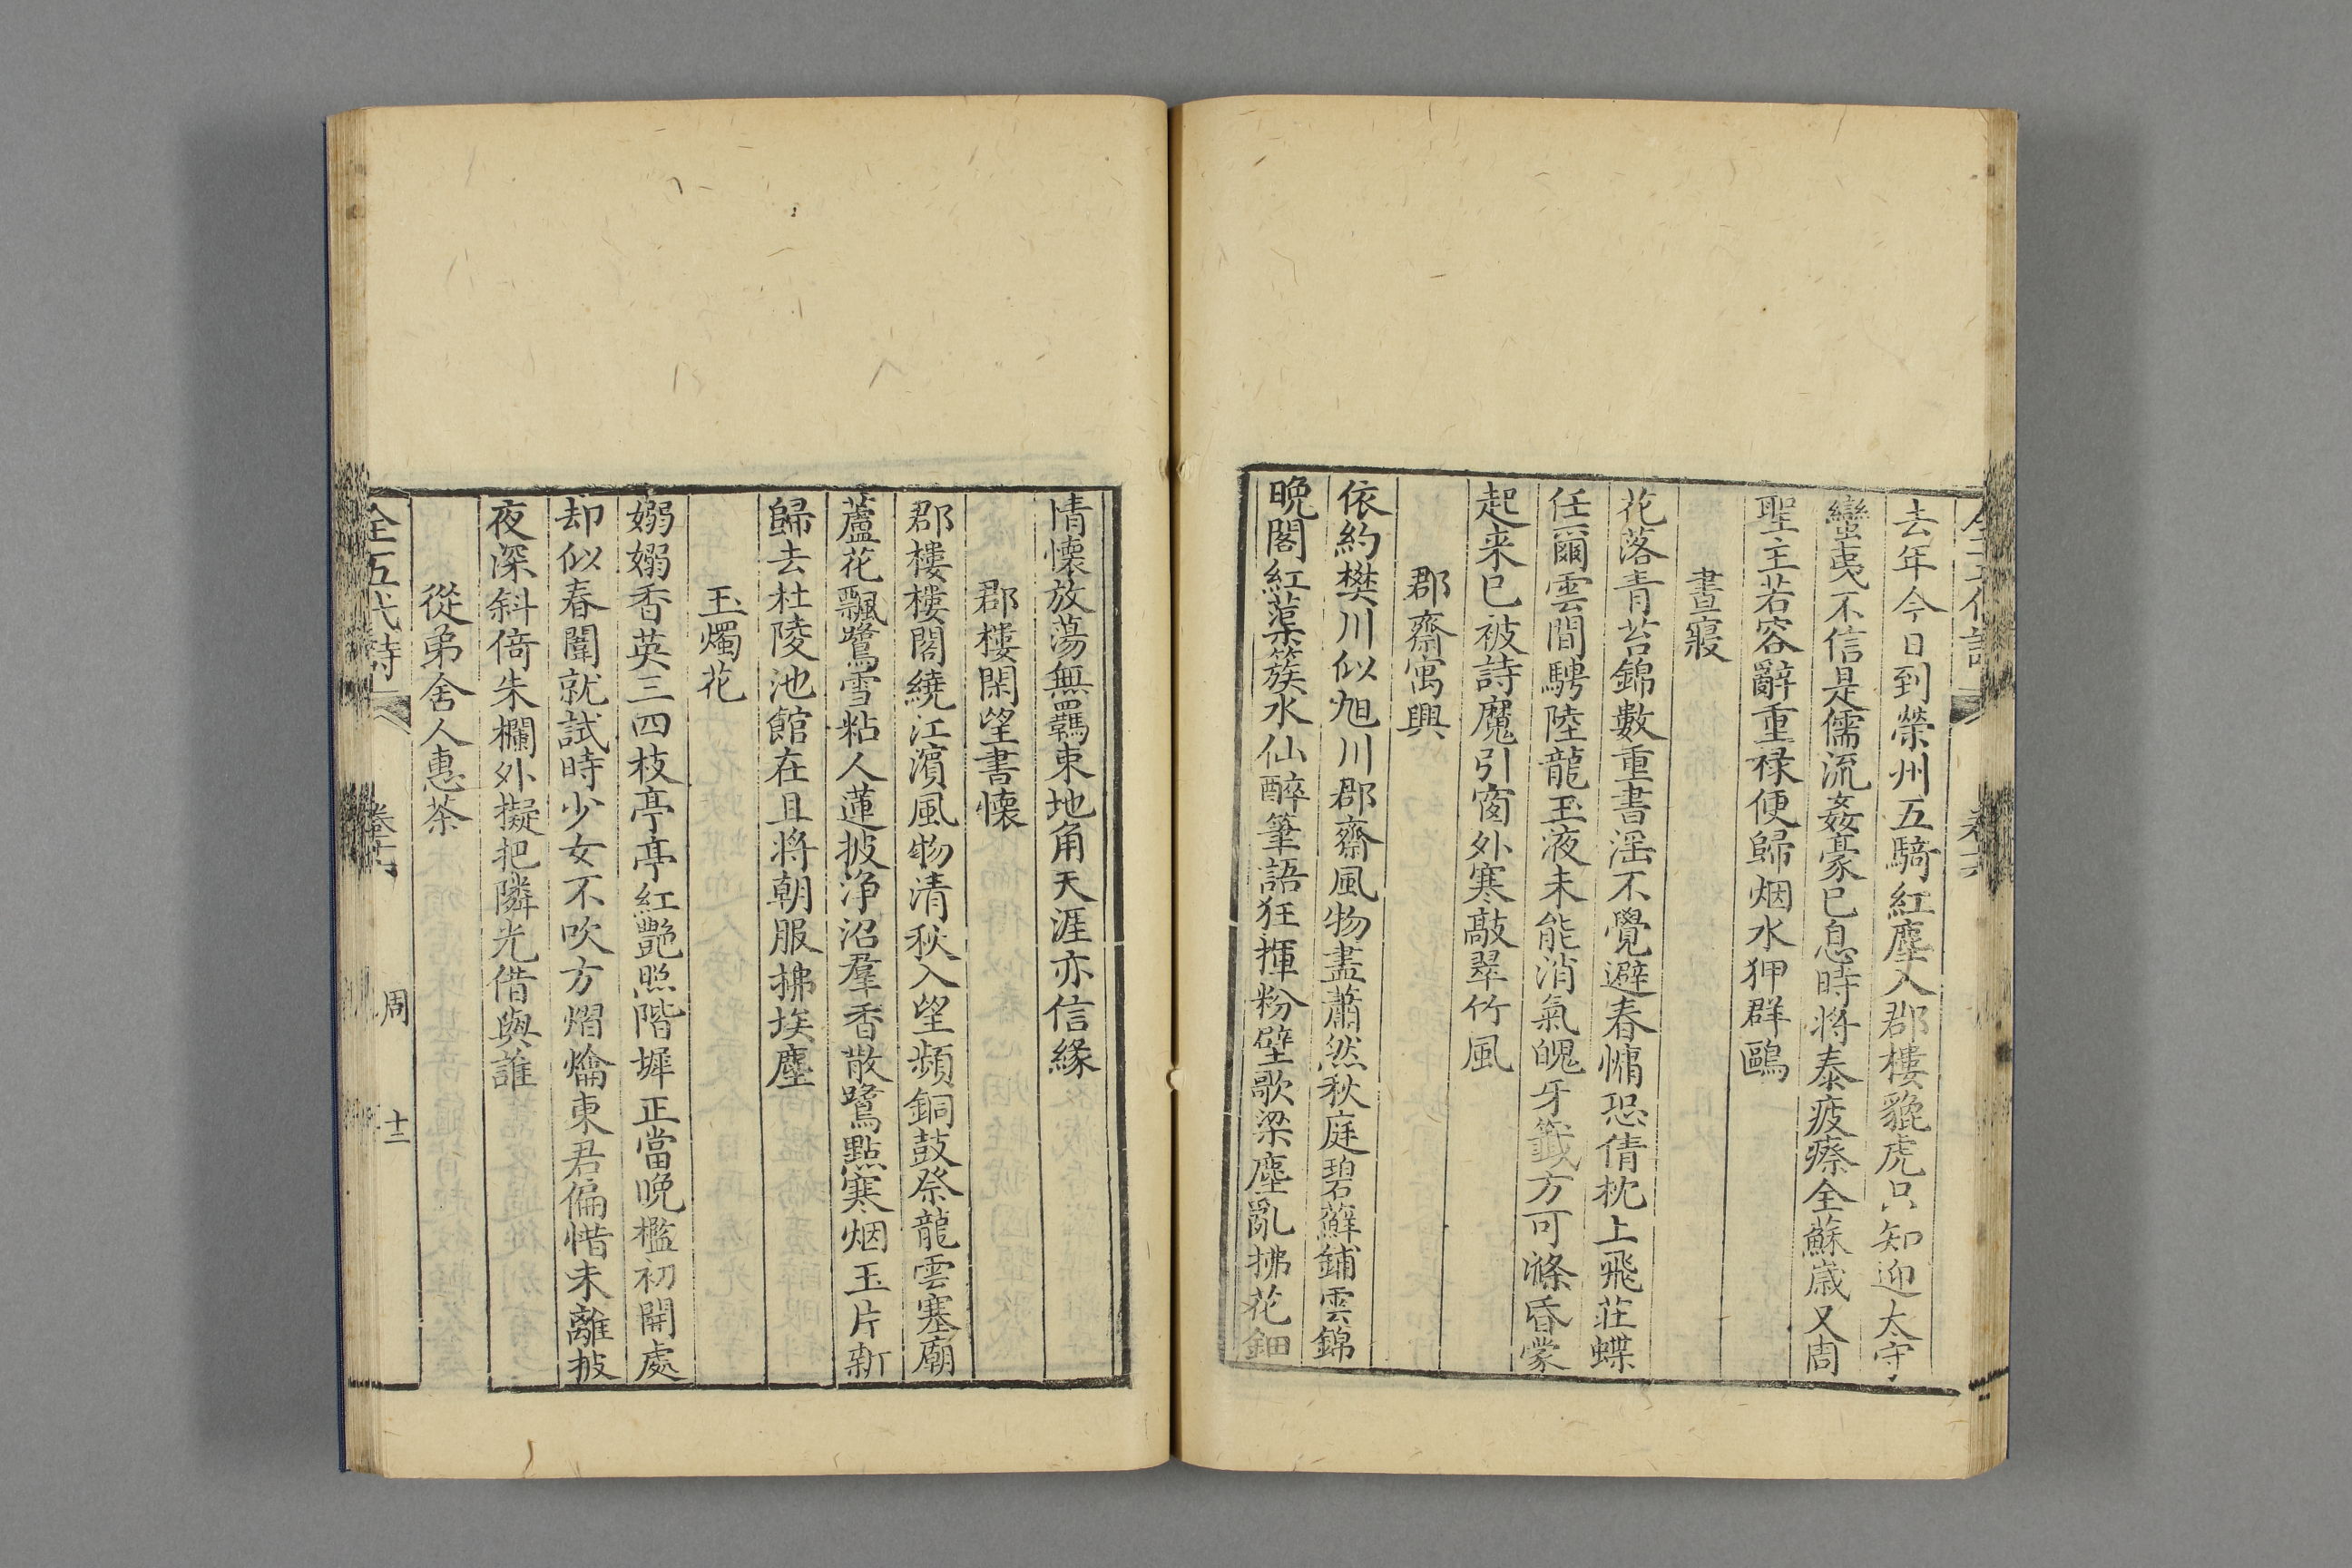 去年今日到榮州五騎紅塵入郡樓貔虎只知迎太守
蠻夷不信是儒流姦豪已息時將泰疲瘵全蘇歲又周
聖主若容辭重祿便歸烟水狎群鷗
晝寢
花落青苔錦數重書淫不覺避春慵恐倩枕上飛莊蝶
任爾雲間騁陸龍玉液未能消氣魄牙籤方可滌昏蒙
起来已被詩魔引窗外寒敲翠竹風
郡齋寓興
依約樊川似旭川郡齋風物盡蕭然秋庭碧蘚鋪雲錦
晩閣紅蕖簇水仙醉筆語狂揮粉壁歌梁塵亂拂花鈿
情懷放蕩無羈束地角天涯亦信緣
郡樓閑望書懷
郡樓樓閣繞江濱風物清秋入望頻銅鼓祭龍雲塞廟
蘆花飄鷺雪粘人蓮披浄沼羣香散鷺點寒烟玉片新
歸去杜陵池館在且将朝服拂埃塵
玉燭花
嫋嫋香英三四枝亭亭紅艷照階墀正當晩檻初開處
却似春闈就試時少女不吹方熠爚東君偏惜未離披
夜深斜倚朱欄外擬把隣光借與誰
從弟舍人惠茶
全五代詩
周
十二